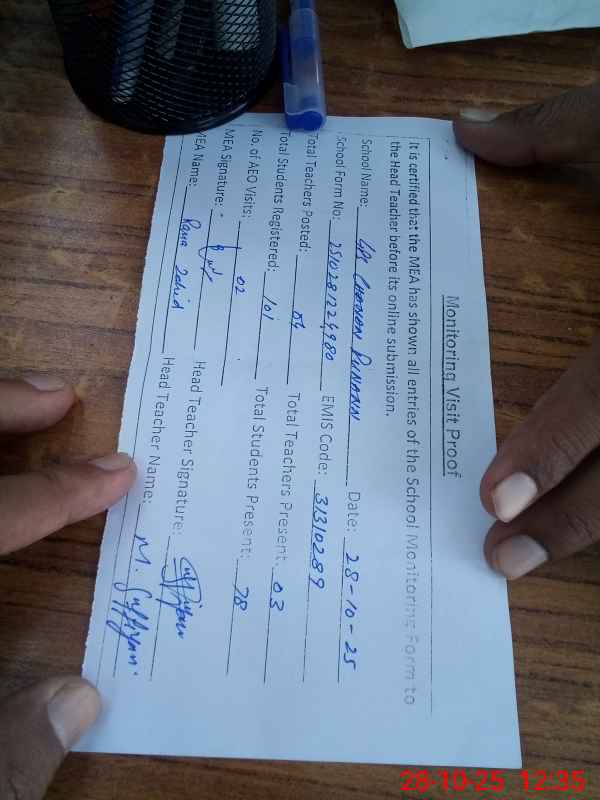 Monitoring Visit Proof
It is certified that the MEA has shown all entries of the School Monitoring Form to
the Head Teacher before its online submission.
School Name: Date: 28-10-25
School Form No: EMIS Code: 31310289
Total Teachers Posted: 04 Total Teachers Present: 03
Total Students Registered: 101 Total Students Present: 78
No. of AEO Visits: 02
MEA Signature: Head Teacher Signature:
MEA Name: Rana Zahid Head Teacher Name: M. Suffyan.
28-10-25 12:35